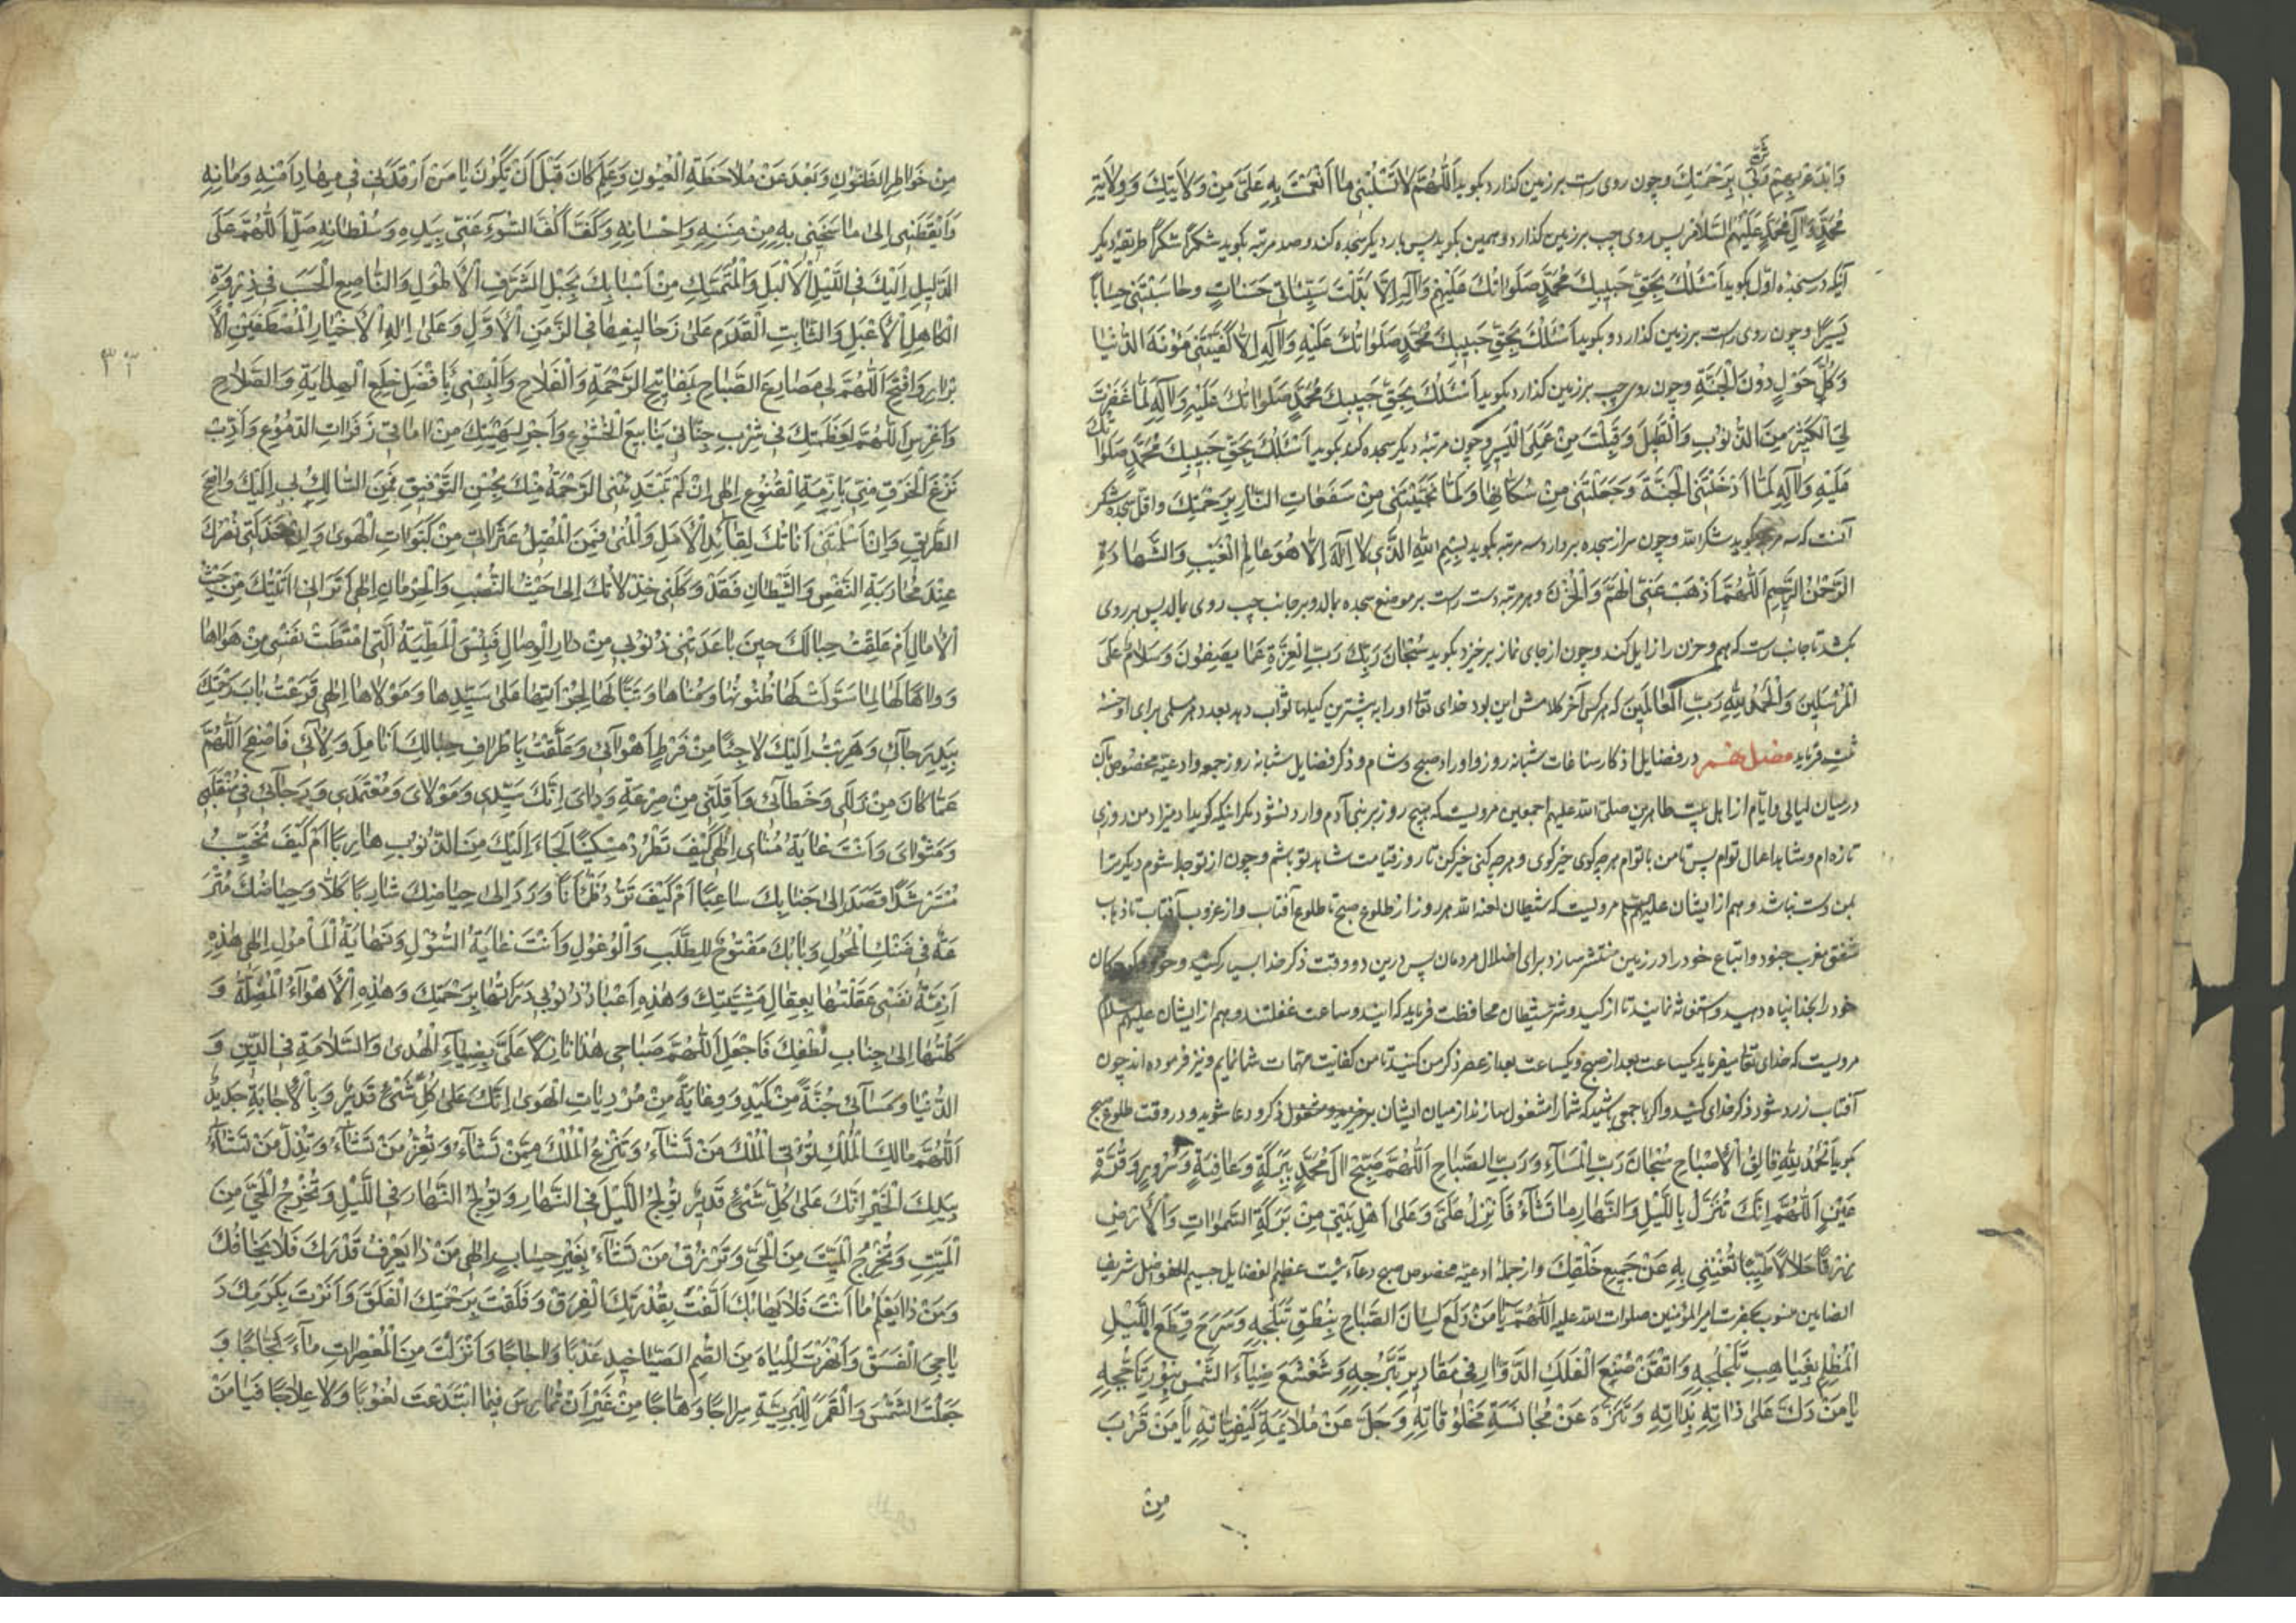 وچون روی راست بر زمین گذارد بگوید اَللّٰهُمَّ لا تَسْلُبْنی ما اَنْعَمْتَ بِهِ عَلَیَّ مِنْ وَلایَتِكَ وَ وِلایَةِ
مُحَمَّدٍ وَ آلِ مُحَمَّدٍ عَلَیْهِمُ السَّلام پس روی چپ بر زمین گذارد و همین بگوید پس بار دیگر سجده کند و صد مرتبه بگوید شُکْراً شُکْراً طریقهٔ دیگر
آنکه در سجدهٔ اوّل بگوید اَسْئَلُكَ بِحَقِّ حَبیبِكَ مُحَمَّدٍ صَلَواتُكَ عَلَیْهِ وَ آلِهِ اِلّا بَدَّلْتَ سَیِّئاتی حَسَناتٍ وَحاسَبْتَنی حِساباً
یَسیراً و چون روی راست بر زمین گذارد و بگوید اَسْئَلُكَ بِحَقِّ حَبیبِكَ مُحَمَّدٍ صَلَواتُكَ عَلَیْهِ وَ آلِهِ اِلّا کَفَیْتَنی مَؤُنَةَ الدُّنْیا
وَ کُلَّ هَوْلٍ دُونَ الْجَنَّةِ و چون روی چپ بر زمین گذارد بگوید اَسْئَلُكَ بِحَقِّ حَبیبِكَ مُحَمَّدٍ صَلَواتُكَ عَلَیْهِ وَ آلِهِ لَمّا غَفَرْتَ
لِیَ الْکَثیرَ مِنَ الذُّنُوبِ وَ الْقَلیلَ وَ قَبِلْتَ مِنْ عَمَلِیَ الْیَسیرَ و چون مرتبهٔ دیگر سجده کند بگوید اَسْئَلُكَ بِحَقِّ حَبیبِكَ مُحَمَّدٍ صَلَواتُكَ
عَلَیْهِ وَ آلِهِ لَمّا اَدْخَلْتَنِی الْجَنَّةَ وَ جَعَلْتَنی مِنْ سُکّانِها وَ لَمّا نَجَّیْتَنی مِنْ سَفَعاتِ النّارِ بِرَحْمَتِكَ و اقلّ سجدهٔ شکر
آنست که سه مرتبه بگوید شکراً لله و چون سر از سجده بردارد سه مرتبه بگوید بِسْمِ اللّٰهِ الَّذی لا اِلٰهَ اِلّا هُوَ عالِمُ الْغَیْبِ وَ الشَّهادَةِ
الرَّحْمٰنُ الرَّحیمُ اَللّٰهُمَّ اَذْهِبْ عَنِّی الْهَمَّ وَ الْحُزْنَ و هر مرتبه دست راست بر موضع سجده بمالد و بر جانب چپ روی بمالد پس بر روی
بکشد تا جانب راست که هم و حزن را زایل کند و چون از جای نماز برخیزد بگوید سُبْحانَ رَبِّكَ رَبِّ الْعِزَّةِ عَمّا یَصِفُونَ وَ سَلامٌ عَلَی
الْمُرْسَلینَ وَ الْحَمْدُ لِلّٰهِ رَبِّ الْعالَمینَ که هر کس آخر کلامش این بود خدای تعالی او را به بیشترین کیلها ثواب دهد و بعدد هر مسلمی برای او حسنه
ثبت فرماید در فضایل اذکار ساعات شبانه روز و اوراد صبح و شام و ذکر فضایل شبانه روز جمعه و ادعیهٔ مخصوص بآن
در بیان لیالی و ایّام از اهل بیت طاهرین صلّی الله علیهم اجمعین مرویست که هیچ روز بر بنی آدم وارد نشود مگر اینکه گوید ادمیزاد من روزی
تازه ام و شاهد اعمال توام پس تا من با توام هر چه گوی خیر گوی و هر چه کنی خیر کن تا روز قیامت شاهد تو باشم و چون از تو جدا شوم دیگر ترا
بمن دست نباشد و هم از ایشان علیهم مرویست که شیطان لعنه الله هر روز از طلوع صبح تا طلوع آفتاب و از غروب آفتاب تا ذهاب
شفق مغرب جنود و اتباع خود را در زمین منتشر سازد برای اضلال مردمان پس درین دو وقت ذکر خدا بسیار کنید و کودکان
خود را بخدا پناه دهید تا از کید و شرّ شیطان محافظت فرماید که ایندو ساعت غفلتند و هم از ایشان علیهم السلام
مرویست که خدای تعالی میفرماید یکساعت بعد از صبح و یکساعت بعد از عصر ذکر من کنید تا من کفایت مهمات شما نمایم و نیز فرموده اند چون
آفتاب زرد شود ذکر خدای کنید و اگر با جمعی باشید که شما را مشغول سازند از میان ایشان برخیزید و مشغول ذکر و دعا شوید و در وقت طلوع صبح
بگوید اَلْحَمْدُ لِلّٰهِ فالِقِ الْاِصْباحِ سُبْحانَ رَبِّ الْمَسآءِ وَ رَبِّ الصَّباحِ اَللّٰهُمَّ صَبِّحْ الَ مُحَمَّدٍ بِبَرَکَةٍ وَ عافِیَةٍ وَ سُرُورٍ وَ قُرَّةِ
عَیْنٍ اَللّٰهُمَّ اِنَّكَ تُنْزِلُ بِاللَّیْلِ وَ النَّهارِ ما تَشآءُ فَاَنْزِلْ عَلَیَّ وَ عَلیٰ اَهْلِ بَیْتی مِنْ بَرَکَةِ السَّمٰواتِ وَ الْاَرْضِ
رِزْقاً حَلالاً طَیِّباً تُغْنینی بِهِ عَنْ جَمیعِ خَلْقِكَ و از جملهٔ ادعیهٔ مخصوص صبح دعآءیست عظیم الفضایل جسیم الفواضل شریف
المضامین منسوب بحضرت امیر المؤمنین صلوات الله علیه اَللّٰهُمَّ یا مَنْ دَلَعَ لِسانَ الصَّباحِ بِنُطْقِ تَبَلُّجِهِ وَ سَرَّحَ قِطَعَ اللَّیْلِ
الْمُظْلِمِ بِغَیاهِبِ تَلَجْلُجِهِ وَ اَتْقَنَ صُنْعَ الْفَلَكِ الدَّوّارِ فی مَقادیرِ تَبَرُّجِهِ وَ شَعْشَعَ ضِیآءَ الشَّمْسِ بِنُورِ تَاَجُّجِهِ
یا مَنْ دَلَّ عَلیٰ ذاتِهِ بِذاتِهِ وَ تَنَزَّهَ عَنْ مُجانَسَةِ مَخْلُوقاتِهِ وَ جَلَّ عَنْ مُلائَمَةِ کَیْفِیّاتِهِ یا مَنْ قَرُبَ
مِنْ
مِنْ خَواطِرِ الظُّنُونِ وَ بَعُدَ عَنْ مُلاحَظَةِ الْعُیُونِ وَ عَلِمَ کانَ قَبْلَ اَنْ یَکُونَ یا مَنْ اَرْقَدَنی فی مِهادِ اَمْنِهِ وَ اَمانِهِ
وَ اَیْقَظَنی اِلیٰ ما مَنَحَنی بِهِ مِنْ مِنَنِهِ وَ اِحْسانِهِ وَ کَفَّ اَکُفَّ السُّوءِ عَنّی بِیَدِهِ وَ سُلْطانِهِ صَلِّ اللّٰهُمَّ عَلَی
الدَّلیلِ اِلَیْكَ فِی اللَّیْلِ الْاَلْیَلِ وَ الْمُتَمَسِّكِ مِنْ اَسْبابِكَ بِحَبْلِ الشَّرَفِ الْاَطْوَلِ وَ النّاصِعِ الْحَسَبِ فی ذِرْوَةِ
الْکاهِلِ الْاَعْبَلِ وَ الثّابِتِ الْقَدَمِ عَلیٰ زَحالیفِها فِی الزَّمَنِ الْاَوَّلِ وَ عَلیٰ الِهِ الْاَخْیارِ الْمُصْطَفَیْنَ الْاَ
بْرارِ وَ افْتَحِ اَللّٰهُمَّ لی مَصاریعَ الصَّباحِ بِمَفاتیحِ الرَّحْمَةِ وَ الْفَلاحِ وَ اَلْبِسْنی بِاَفْضَلِ خِلَعِ الْهِدایَةِ وَ الصَّلاحِ
۳۳
وَ اَغْرِسِ اَللّٰهُمَّ لِعَظَمَتِكَ فی شِرْبِ جَنانی یَنابیعَ الْخُشُوعِ وَ اَجْرِ لِهَیْبَتِكَ مِنْ اماقی زَفَراتِ الدُّمُوعِ وَ اَدِّبْ
نَزْغَ الْخُرْقِ مِنّی بِاَزِمَّةِ الْقُنُوعِ اِلٰهی اِنْ لَمْ تَبْتَدِئْنِی الرَّحْمَةُ مِنْكَ بِحُسْنِ التَّوْفیقِ فَمَنِ السّالِكُ بی اِلَیْكَ فی واضِحِ
الطَّریقِ وَ اِنْ اَسْلَمَتْنی اَناتُكَ لِقائِدِ الْاَمَلِ وَ الْمُنیٰ فَمَنِ الْمُقیلُ عَثَراتی مِنْ کَبَواتِ الْهَویٰ وَ اِنْ خَذَلَنی نَصْرُكَ
عِنْدَ مُحارَبَةِ النَّفْسِ وَ الشَّیْطانِ فَقَدْ وَکَلَنی خِذْلانُكَ اِلیٰ حَیْثُ النَّصَبِ وَ الْحِرْمانِ اِلٰهی اَتَرانی اَتَیْتُكَ مِنْ حَیْثُ
الْامالِ اَمْ عَلِقْتُ حِبالَكَ حینَ باعَدَتْنی ذُنُوبی مِنْ دارِ الْوِصالِ فَبِئْسَ الْمَطِیَّةُ الَّتی امْتَطَتْ نَفْسی مِنْ هَواها
وَ واهاً لَها لِما سَوَّلَتْ لَها ظُنُونُها وَ مُناها وَ تَبّاً لَها لِجُرْاَتِها عَلیٰ سَیِّدِها وَ مَوْلاها اِلٰهی قَرَعْتُ بابَ رَحْمَتِكَ
بِیَدِ رَجآئی وَ هَرَبْتُ اِلَیْكَ لاجِئاً مِنْ فَرْطِ اَهْوآئی وَ عَلَّقْتُ بِاَطْرافِ حِبالِكَ اَنامِلَ وَلائی فَاصْفَحِ اَللّٰهُمَّ
عَمّا کانَ مِنْ زَلَلی وَ خَطآئی وَ اَقِلْنی مِنْ صَرْعَةِ رِدائی اِنَّكَ سَیِّدی وَ مَوْلایَ وَ مُعْتَمَدی وَ رَجآئی فی مُنْقَلَبی
وَ مَثْوایَ وَ اَنْتَ غایَةُ مُنایَ اِلٰهی کَیْفَ تَطْرُدُ مِسْکیناً لَجَاَ اِلَیْكَ مِنَ الذُّنُوبِ هارِباً اَمْ کَیْفَ تُخَیِّبُ
مُسْتَرْشِداً قَصَدَ اِلیٰ جَنابِكَ ساعِیاً اَمْ کَیْفَ تَرُدُّ ظَمْاٰناً وَرَدَ اِلیٰ حِیاضِكَ شارِباً کَلّا وَ حِیاضُكَ مُتْرَ
عَةٌ فی ضَنْكِ الْمُحُولِ وَ بابُكَ مَفْتُوحٌ لِلطَّلَبِ وَ الْوُغُولِ وَ اَنْتَ غایَةُ السُّؤْلِ وَ نِهایَةُ الْمَاْمُولِ اِلٰهی هٰذِهِ
اَزِمَّةُ نَفْسی عَقَلْتُها بِعِقالِ مَشِیَّتِكَ وَ هٰذِهِ اَعْباءُ ذُنُوبی دَرَئْتُها بِرَحْمَتِكَ وَ هٰذِهِ الْاَهْوآءُ الْمُضِلَّةُ وَ
کَلْتُها اِلیٰ جَنابِ لُطْفِكَ فَاجْعَلِ اَللّٰهُمَّ صَباحی هٰذا نازِلاً عَلَیَّ بِضِیآءِ الْهُدیٰ وَ السَّلامَةِ فِی الدّینِ وَ
الدُّنْیا وَ مَسآئی جُنَّةً مِنْ کَیْدِ وَ وِقایَةً مِنْ مُرْدِیاتِ الْهَویٰ اِنَّكَ عَلیٰ کُلِّ شَیْءٍ قَدیرٌ وَ بِالْاِجابَةِ جَدیرٌ
اَللّٰهُمَّ مالِكَ الْمُلْكِ تُؤْتِی الْمُلْكَ مَنْ تَشآءُ وَ تَنْزِعُ الْمُلْكَ مِمَّنْ تَشآءُ وَ تُعِزُّ مَنْ تَشآءُ وَ تُذِلُّ مَنْ تَشآءُ
بِیَدِكَ الْخَیْرُ اِنَّكَ عَلیٰ کُلِّ شَیْءٍ قَدیرٌ تُولِجُ اللَّیْلَ فِی النَّهارِ وَ تُولِجُ النَّهارَ فِی اللَّیْلِ وَ تُخْرِجُ الْحَیَّ مِنَ
الْمَیِّتِ وَ تُخْرِجُ الْمَیِّتَ مِنَ الْحَیِّ وَ تَرْزُقُ مَنْ تَشآءُ بِغَیْرِ حِسابٍ اِلٰهی مَنْ ذا یَعْرِفُ قَدْرَكَ فَلا یَخافُكَ
وَ مَنْ ذا یَعْلَمُ ما اَنْتَ فَلا یَهابُكَ اَلَّفْتَ بِقُدْرَتِكَ الْفِرَقَ وَ فَلَقْتَ بِرَحْمَتِكَ الْفَلَقَ وَ اَنَرْتَ بِکَرَمِكَ دَ
یاجِیَ الْغَسَقِ وَ اَنْهَرْتَ الْمِیاهَ مِنَ الصُّمِّ الصَّیاخیدِ عَذْباً وَ اُجاجاً وَ اَنْزَلْتَ مِنَ الْمُعْصِراتِ مآءً ثَجّاجاً وَ
جَعَلْتَ الشَّمْسَ وَ الْقَمَرَ لِلْبَرِیَّةِ سِراجاً وَهّاجاً مِنْ غَیْرِ اَنْ تُمارِسَ فیمَا ابْتَدَعْتَ لُغُوباً وَ لا عِلاجاً فَیا مَنْ